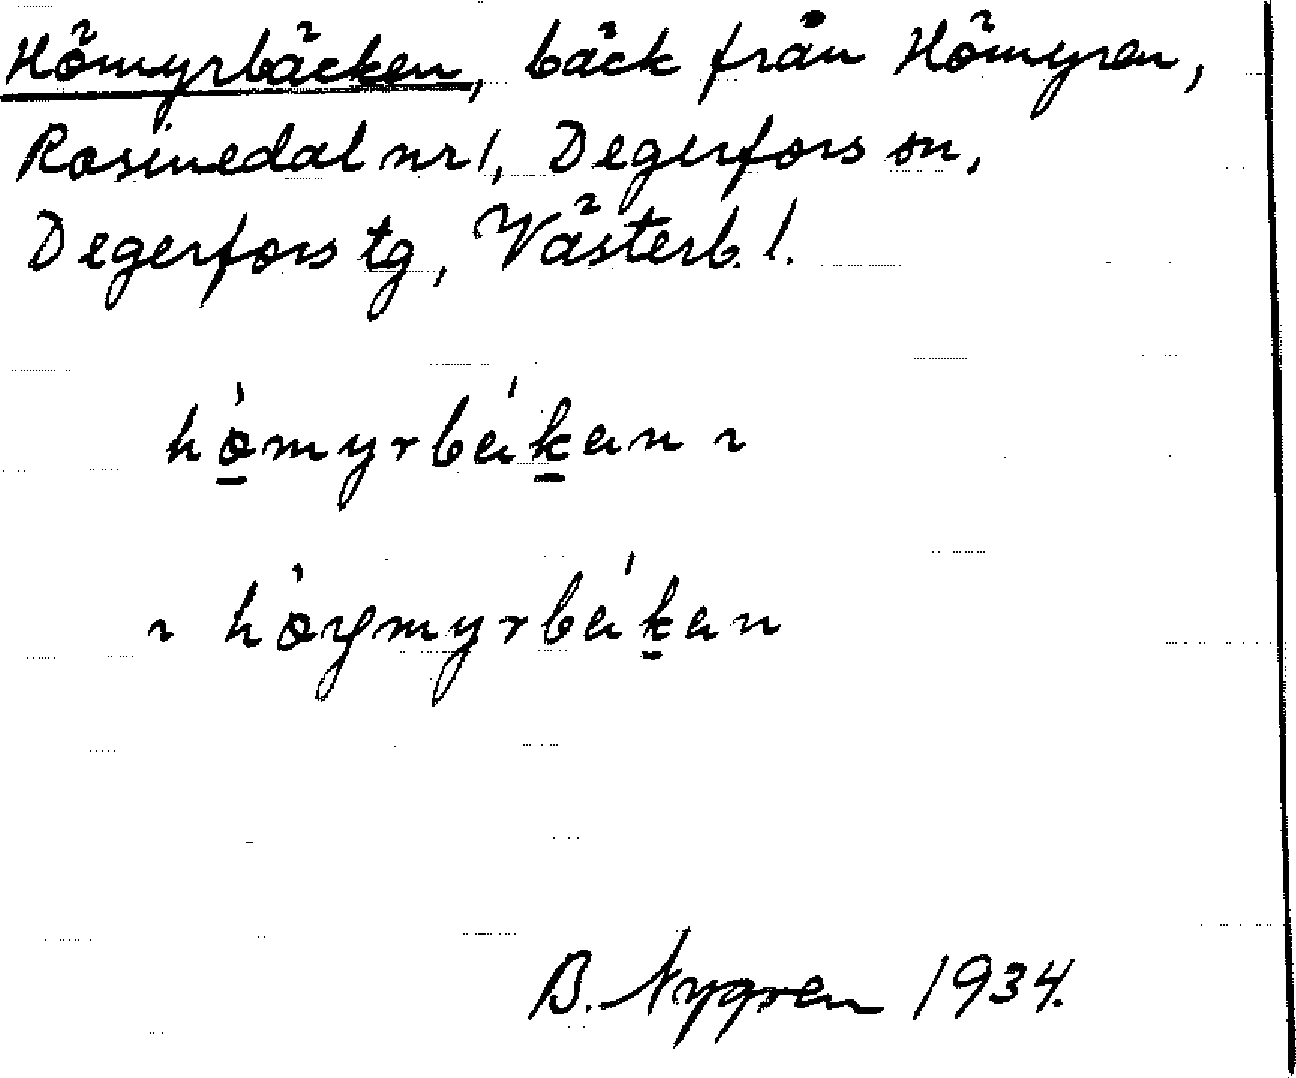 Hömyrbäcken, bäck från Hömyren,
Rosinedal nr 1, Degerfors sn,
Degerfors tg, Västerb. l.
hö̀myrbä́kän ~
~ hö̀gmyrbä́kän
B. Nygren 1934.